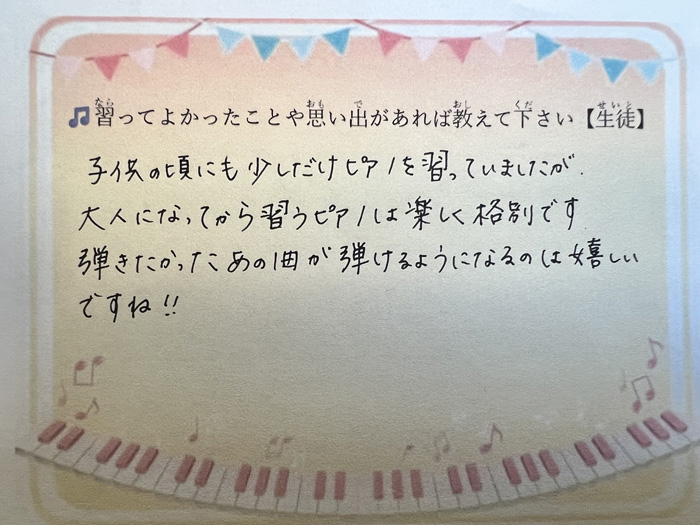 ♫習ってよかったことや思い出があれば教えて下さい【生徒】
子供の頃にも少しだけピアノを習っていましたが、
大人になってから習うピアノは楽しく格別です
弾きたかったあの曲が弾けるようになるのは嬉しい
ですね!!